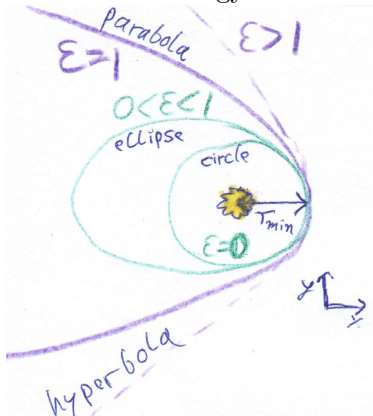 parabola
ε>1
ε=1
0<ε<1
ellipse
circle
rmin
ε=0
y
x
hyperbola